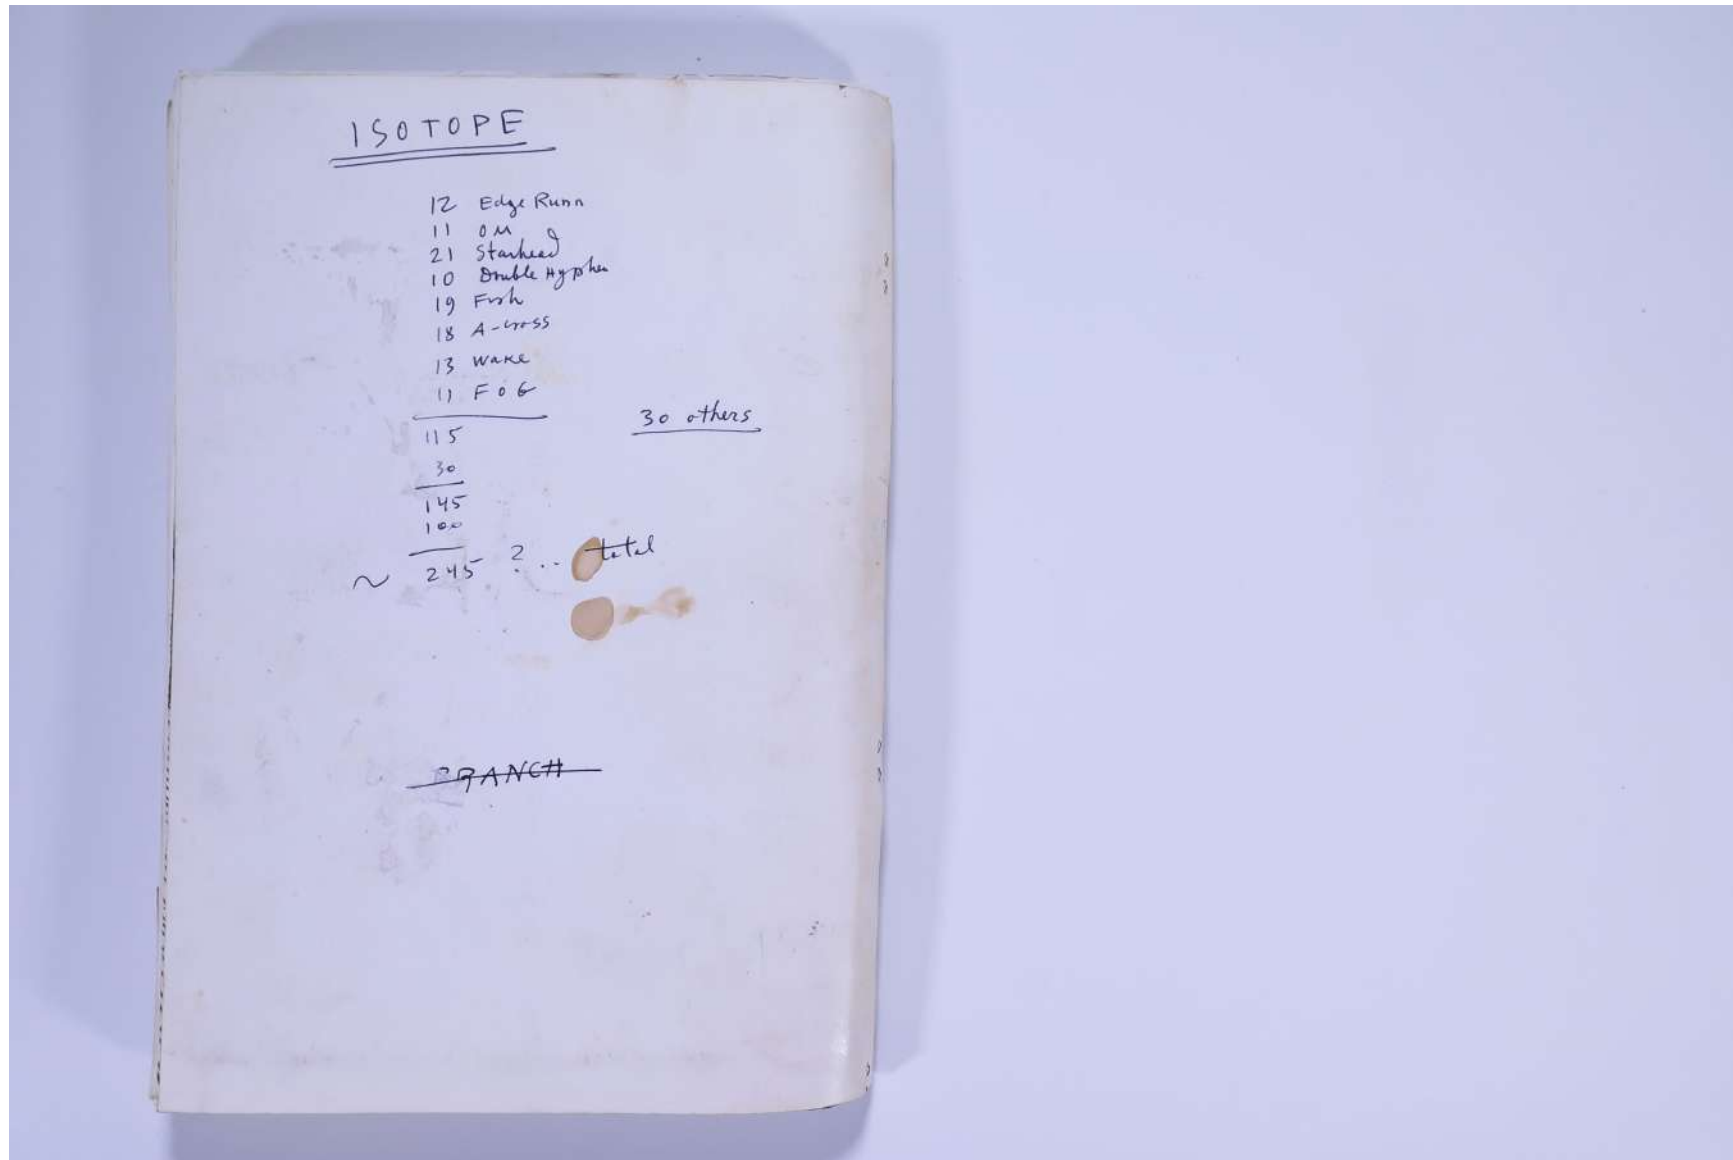 ISOTOPE
12 Edge Runn
11 OM
21 Starhead
10 Double Hyphen
19 Fish
18 A-cross
13 Wake
11 FOG
30 others
115
30
145
100
~ 245 ? .. total
BRANCH